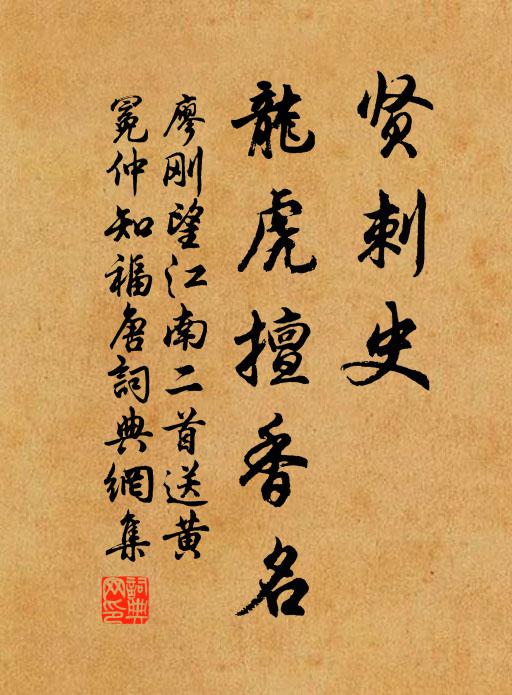 贤刺史
龍虎擅香名
廖刚望江南二首送黄
冕仲知福唐詞典網集
詞典
网印